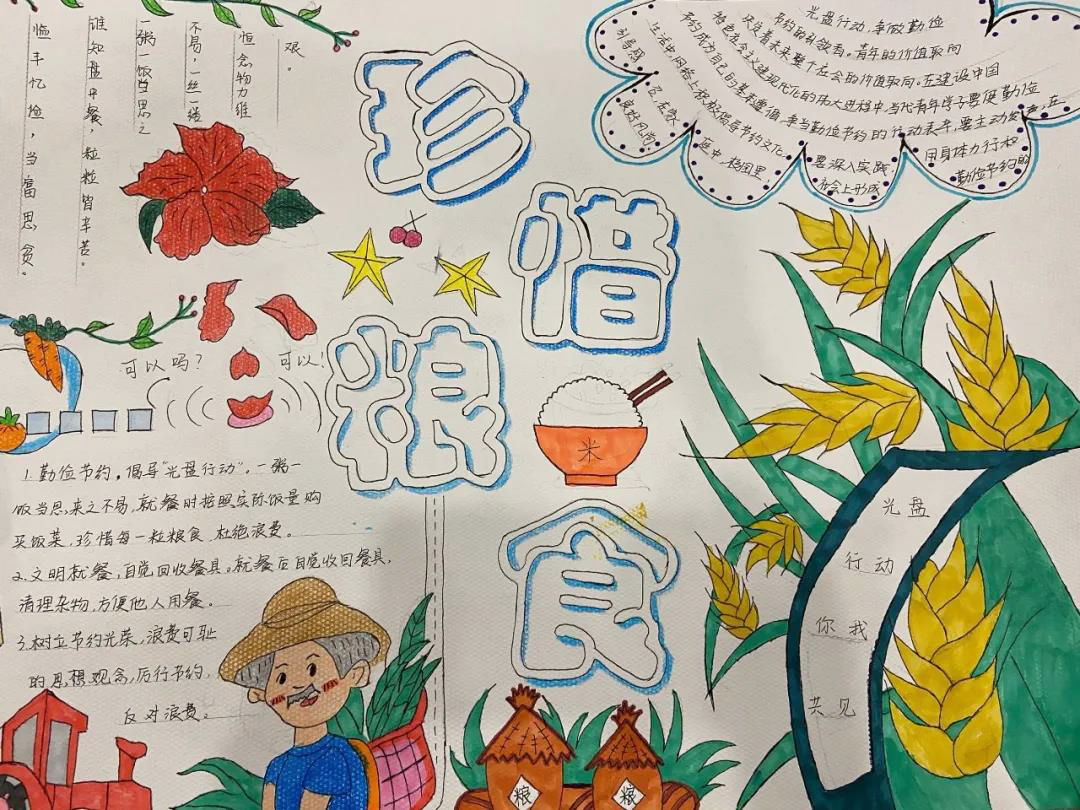 临丰忆俭，当富思贫。
谁知盘中餐，粒粒皆辛苦。
一粥一饭当思之
不易，一丝一缕
恒念物力维
艰。
光盘行动，争做勤俭
节约的引领者。青年的价值取向
决定着未来整个社会的价值取向。在建设中国
特色社会主义建现代化的伟大进程中，当代青年学子要使勤俭
节约成为自己的基本遵循，争当勤俭节约的行动表率，要主动发声，在
生活中，网络上积极倡导节约文化，要深入实践，用身体力行和
引导感召，在家庭中，校园里，社会上形成勤俭节约的
良好风尚
珍
惜
粮
食
可以吗？
可以！
米
1.勤俭节约，倡导“光盘行动”。一粥一
饭当思，来之不易，就餐时按照实际饭量购
买饭菜，珍惜每一粒粮食，杜绝浪费。
2.文明就餐，自觉回收餐具。就餐后自觉收回餐具，
清理杂物，方便他人用餐。
3.树立节约光荣，浪费可耻
的思想观念，厉行节约，
反对浪费。
光盘
行动
你我
共见
粮
粮